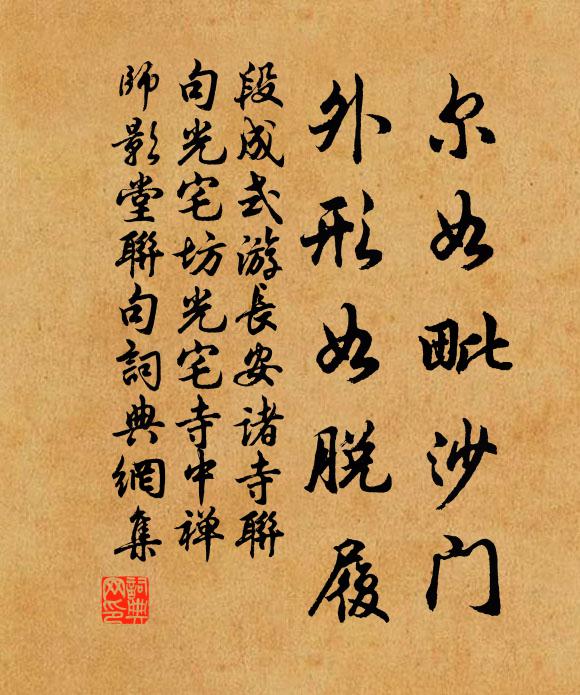 尔如毗沙门
外形如脱履
段成式游长安诸寺聯
句光宅坊光宅寺中禅
师影堂聯句詞典網集
詞典
网印